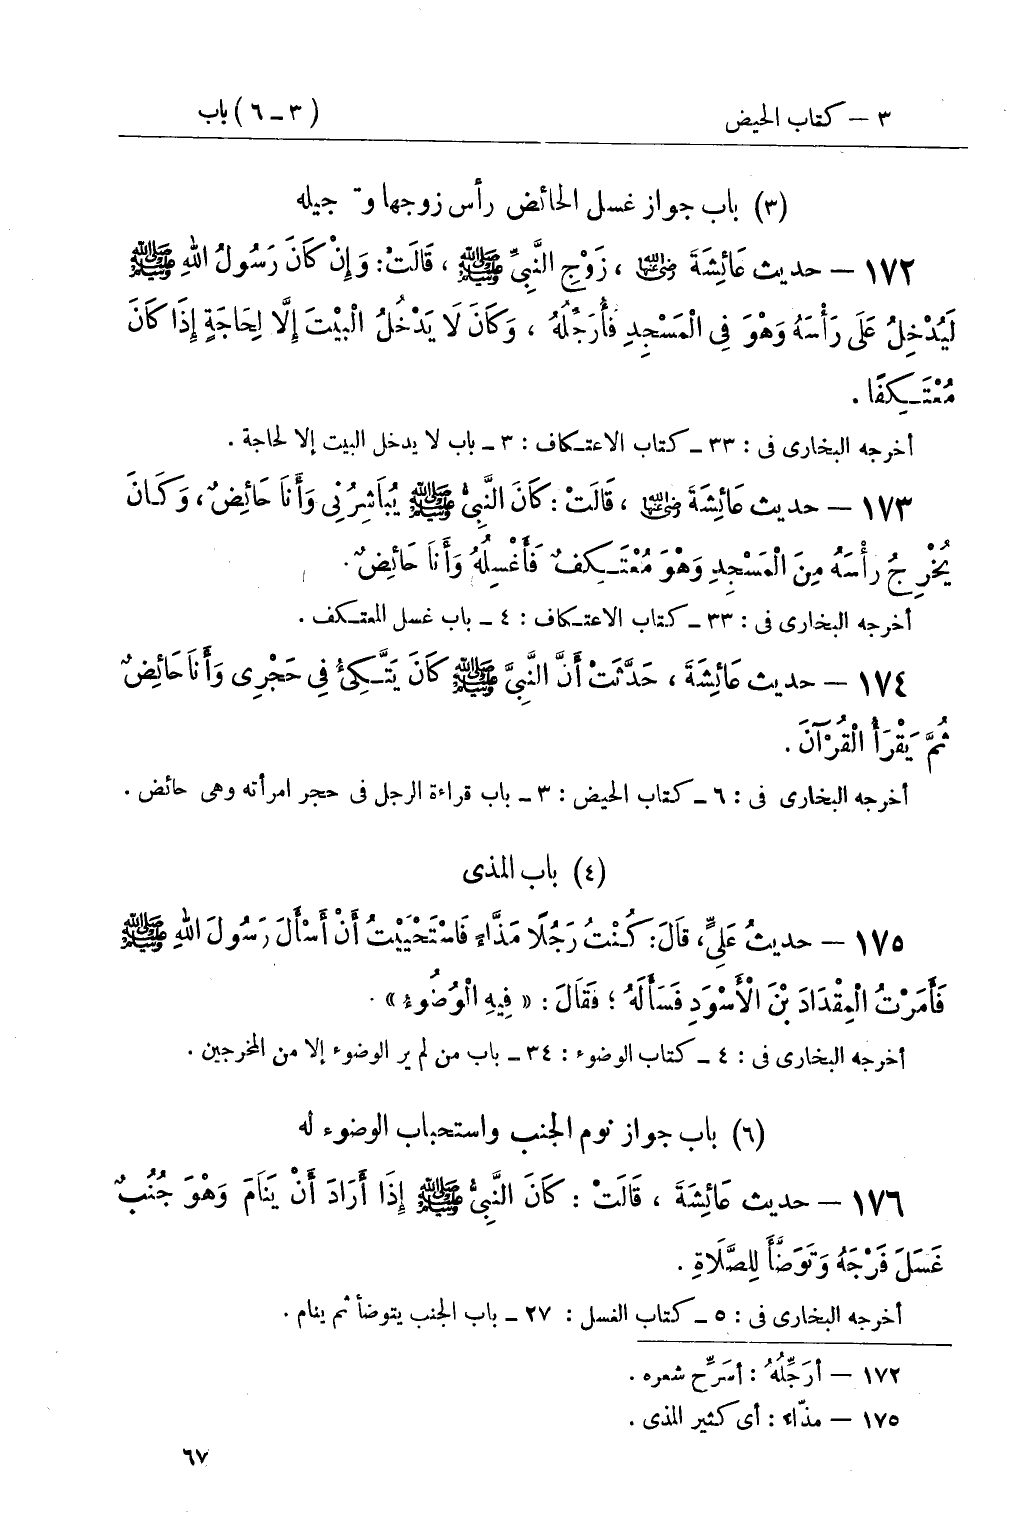 ٣ — كتاب الحيض (٣ – ٦) باب
(٣) باب جواز غسل الحائض رأس زوجها و جيله
١٧٢ — حديث عَائِشَةَ رضي الله عنها ، زَوْجِ النَّبِيِّ ﷺ ، قَالَتْ : وَإِنْ كَانَ رَسُولُ اللهِ ﷺ
لَيُدْخِلُ عَلَى رَأْسَهُ وَهْوَ فِى الْمَسْجِدِ فَأُرَجِّلُهُ ، وَكَانَ لَا يَدْخُلُ الْبَيْتَ إِلَّا لِحَاجَةٍ إِذَا كَانَ
مُعْتَكِفًا .
أخرجه البخارى فى : ٣٣ – كتاب الاعتكاف : ٣ – باب لا يدخل البيت إلا لحاجة .
١٧٣ — حديث عَائِشَةَ رضي الله عنها ، قَالَتْ : كَانَ النَّبِيُّ ﷺ يُبَاشِرُنِى وَأَنَا حَائِضٌ ، وَكَانَ
يُخْرِجُ رَأْسَهُ مِنَ الْمَسْجِدِ وَهْوَ مُعْتَكِفٌ فَأَغْسِلُهُ وَأَنَا حَائِضٌ .
أخرجه البخارى فى : ٣٣ – كتاب الاعتكاف : ٤ – باب غسل المعتكف .
١٧٤ — حديث عَائِشَةَ ، حَدَّثَتْ أَنَّ النَّبِيَّ ﷺ كَانَ يَتَّكِئُ فِى حَجْرِى وَأَنَا حَائِضٌ
ثُمَّ يَقْرَأُ الْقُرْآنَ .
أخرجه البخارى فى : ٦ – كتاب الحيض : ٣ – باب قراءة الرجل فى حجر امرأته وهى حائض .
(٤) باب المذى
١٧٥ — حديثُ عَلِيٍّ ، قَالَ : كُنْتُ رَجُلًا مَذَّاءً فَاسْتَحْيَيْتُ أَنْ أَسْأَلَ رَسُولَ اللهِ ﷺ
فَأَمَرْتُ الْمِقْدَادَ بْنَ الْأَسْوَدِ فَسَأَلَهُ ؛ فَقَالَ : « فِيهِ الْوُضُوءُ » .
أخرجه البخارى فى : ٤ – كتاب الوضوء : ٣٤ – باب من لم ير الوضوء إلا من المخرجين .
(٦) باب جواز نوم الجنب واستحباب الوضوء له
١٧٦ — حديث عَائِشَةَ ، قَالَتْ : كَانَ النَّبِيُّ ﷺ إِذَا أَرَادَ أَنْ يَنَامَ وَهْوَ جُنُبٌ
غَسَلَ فَرْجَهُ وَتَوَضَّأَ لِلصَّلَاةِ .
أخرجه البخارى فى : ٥ – كتاب الغسل : ٢٧ – باب الجنب يتوضأ ثم ينام .
١٧٢ — أرَجِّلُهُ : أسَرِّح شعره .
١٧٥ — مذّاء : أى كثير المذى .
٦٧